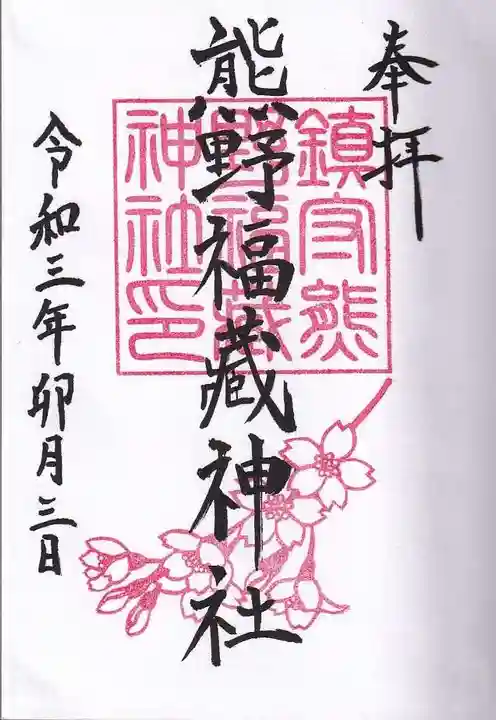 奉拝
熊野福蔵神社
令和三年卯月三日
鎮守熊
野福蔵
神社印